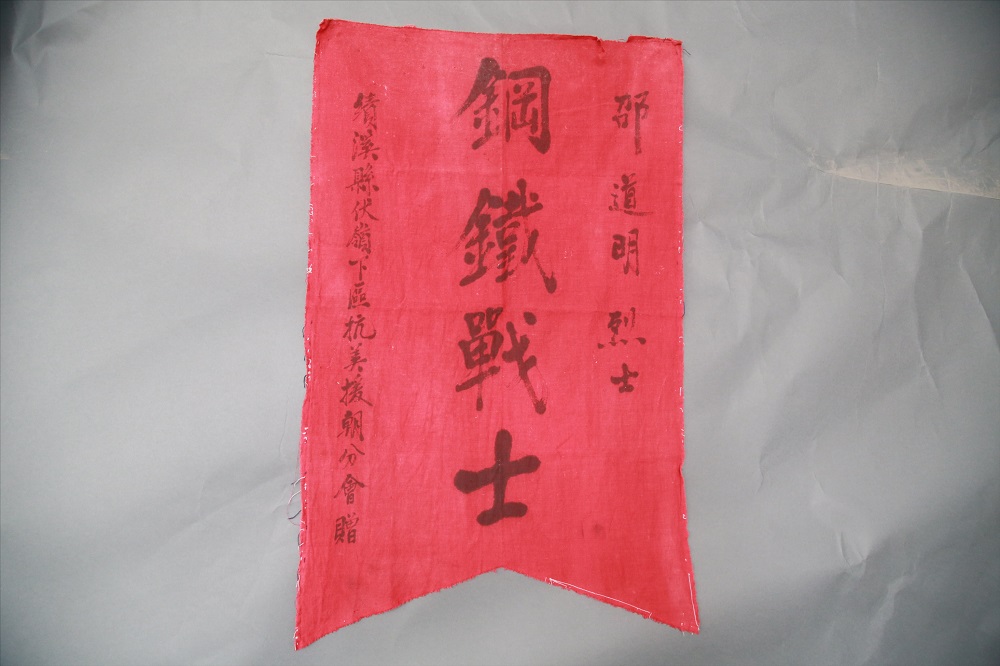 邵道明烈士
鋼鐵戰士
績溪縣伏嶺下區抗美援朝分會贈